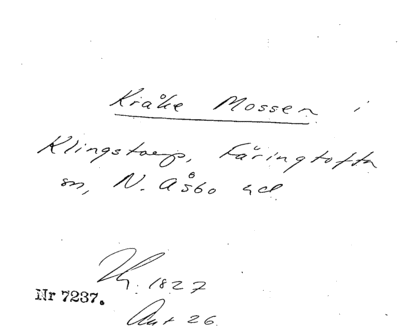 Kråke Mossen i
Klingstorp, Färingtofta
sn, N. Åsbo hd
1827
Nr 7237.
26